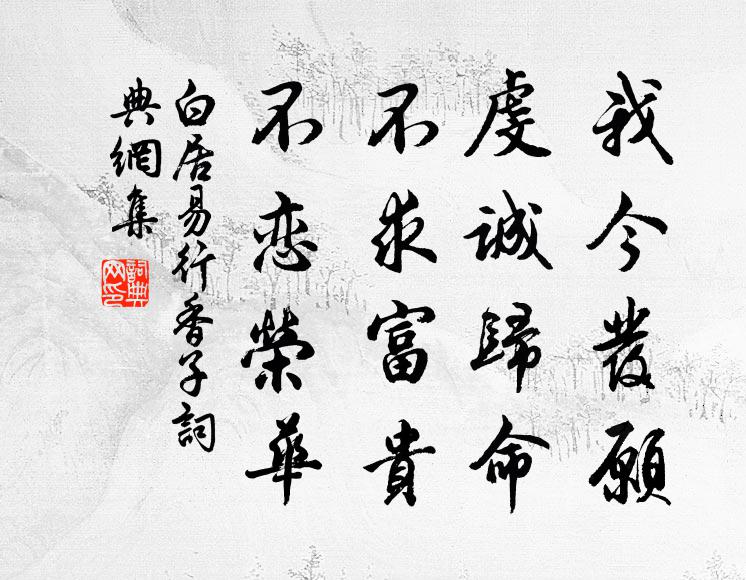 我今發願
虔誠歸命
不求富貴
不恋榮華
白居易行香子詞
典網集
詞典網印